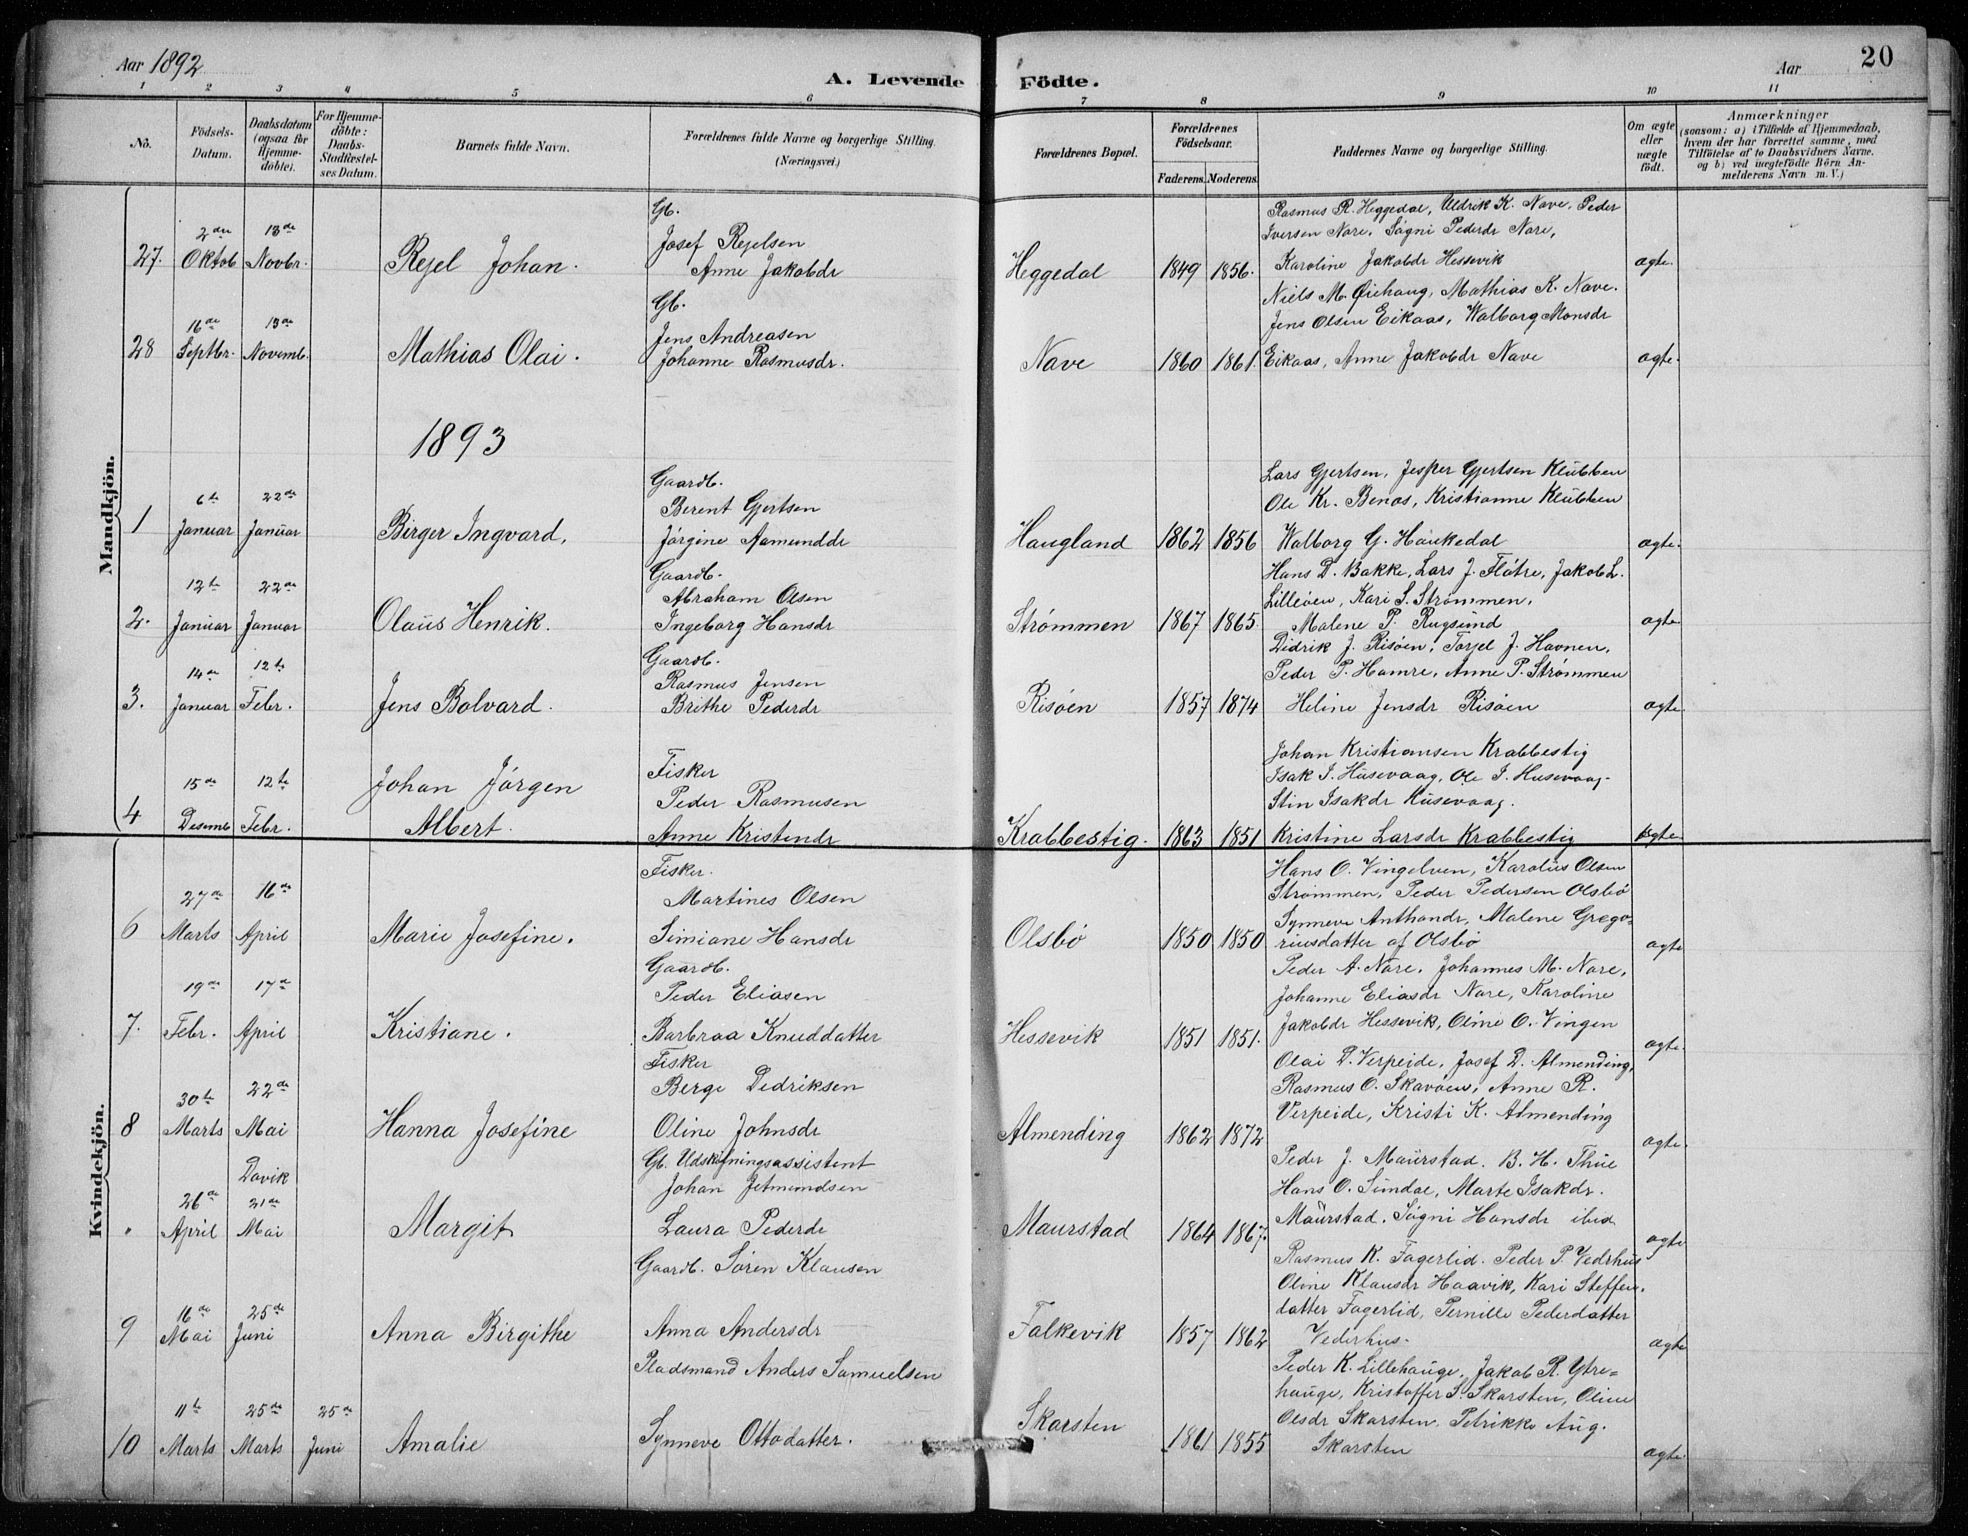 Aar 1892
A. Levende Födte.
Aar
20
1 2 3 4 5 6 7 8 9 10 11
No.
Födsels-Datum.
Daabsdatum (ogsaa for Hjemme-döbte).
For Hjemme-döbte: Daabs-Stadfæstel-ses Datum.
Barnets fulde Navn.
Forældrenes fulde Navne og borgerlige Stilling. (Næringsvei)
Forældrenes Bopæl.
Forældrenes Födselsaar.
Faderens. Moderens.
Faddernes Navne og borgerlige Stilling.
Om ægte eller uægte födt.
Anmærkninger
(saasom: a) i Tilfælde af Hjemmedaab,
hvem der har forrettet samme, med
Tilföielse af to Daabsvidners Navne.
og b) ved uægtefödte Börn An-
melderens Navn m. V.)
Mandkjön.
27. 2den Oktob 13de Novbr. Rejel Johan.
Gb.
Josef Rejelsen
Anne Jakobdr
Heggedal 1849 1856.
Rasmus R. Heggedal, Uldrik K. Nave, Peder
Iversen Nore, Søgni Pederdr Nore,
Karoline Jakobdr Hessevik
ægte.
28 16de Septbr. 13de Novemb. Mathias Olai.
Gb.
Jens Andreasen
Johanne Rasmusdr.
Nave 1860 1861.
Niels M. Øiehaug, Mathias K. Nave.
Jens Olsen Eikaas, Walborg Monsdr
Eikaas, Anne Jakobdr Nave
ægte.
1893
1 6te Januar 22de Januar Birger Ingvard.
Gaardb.
Berent Gjertsen
Jørgine Aamunddr
Haugland 1862 1856
Lars Gjertsen, Jesper Gjertsen Klubben
Ole Kr. Benos, Kristianne Klubben
Walborg G. Haukedal
ægte.
2. 12te Januar 22de Januar Olaus Henrik.
Gaardb.
Abraham Olsen
Ingeborg Hansdr
Strømmen 1867 1865.
Hans D. Bakke, Lars J. Fløtre, Jakob L.
Lilleøen, Kari S. Strømmen,
Malene P. Rugsund
ægte
3. 14de Januar 12te Febr. Jens Bolvard.
Gaardb.
Rasmus Jensen
Brithe Pederdr
Risøen 1857 1874
Didrik J. Risøen, Torjel J. Havnen,
Peder P. Hamre, Anne P. Strømmen
Heline Jensdr Risøen
ægte
4 15de Desemb 12te Febr. Johan Jörgen
Albert.
Fisker
Peder Rasmusen
Anne Kristendr
Krabbestig. 1863 1851
Johan Kristiansen Krabbestig
Isak I. Husevaag, Ole I. Husevaag.
Stin Isakdr Husevaag.
Kristine Larsdr Krabbestig
ægte
Kvindekjön.
6 27de Marts 16de April Marie Josefine.
Fisker.
Martines Olsen
Simiane Hansdr
Olsbø 1850 1850
Hans O. Vingelven, Karolus Olsen
Strømmen, Peder Pedersen Olsbø
Synneve Anthondr, Malene Grego-
riusdatter af Olsbø
ægte
7. 19de Febr. 17de April Kristiane.
Gaardb.
Peder Eliasen
Barbraa Knuddatter
Hessevik 1851 1851.
Peder A. Nore, Johannes M. Nore,
Johanne Eliasdr Nore, Karoline
Jakobdr Hessevik, Oline O. Vingen
ægte.
8 30te Marts 22de Mai Hanna Josefine
Fisker
Berge Dedriksen
Oline Johnsdr
Almending 1862 1872
Olai D. Verpeide, Josef D. Almending,
Rasmus O. Skavøen, Anne R.
Verpeide, Kristi K. Almending
ægte.
" 26de April Davik 21de Mai Margit
Gb. Udskiftningsassistent
Johan Jetmundsen
Laura Pederdr
Maurstad 1864 1867.
Peder J. Maurstad. B. H. Thue
Hans O. Sundal, Marte Isakdr.
Maurstad, Søgni Hansdr ibid
ægte
9 16de Mai 25de Juni Anna Birgithe
Gaardb. Søren Klausen
Anna Andersdr
Falkevik 1857 1862
Rasmus K. Fagerlid. Peder P. Vedrhus
Oline Klausdr Haavik, Kari Steffen-
datter Fagerlid, Pernille Pederdatter
Vederhus.
ægte
10 11te Marts 25de Marts 25de Juni Amalie
Pladsmand Anders Samuelsen
Synneve Ottodatter.
Skorsten 1861 1855
Peder K. Lillehauge, Jakob R. Ytre-
hauge, Kristoffer S. Skorsten, Oline
Olsdr Skorsten. Petrikke Aug.
Skorsten
ægte.